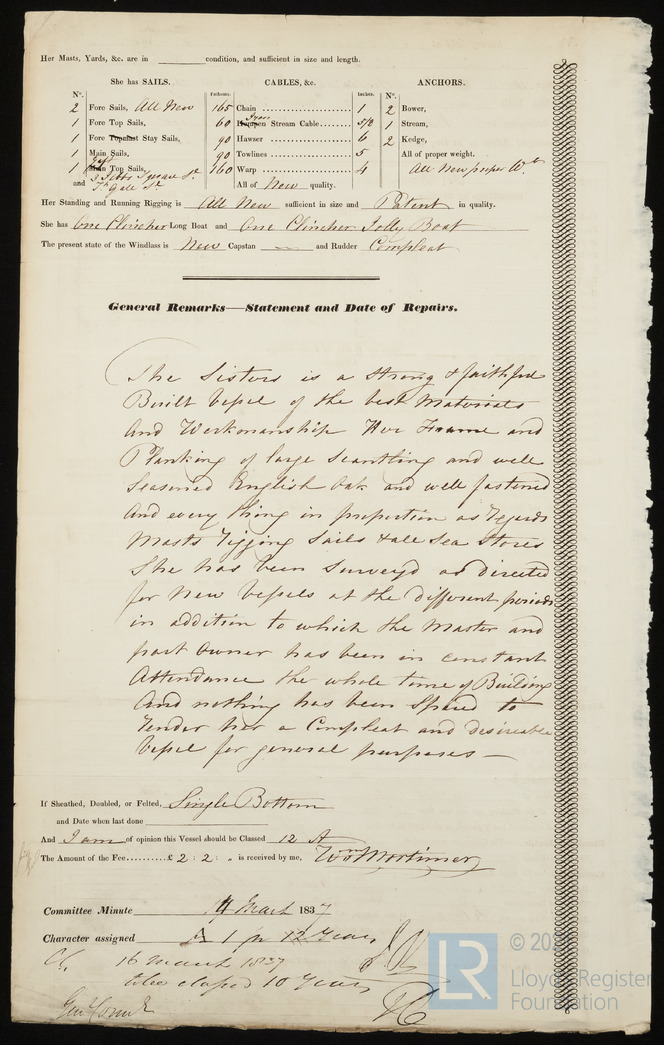 Her Masts, Yards, &c. are in condition, and sufficient in size and length.
She has SAILS. CABLES, &c. ANCHORS.
Nº. Fathoms. Inches. Nº.
2 Fore Sails, All New 165 Chain 1 2 Bower,
1 Fore Top Sails, 60 Hempen Stream Cable 5/8 1 Stream,
1 Fore Topmast Stay Sails, 90 Hawser 6 2 Kedge,
1 Main Sails, 90 Towlines 5 All of proper weight.
1 Main Top Sails, 160 Warp 4 All New proper Wt
and All of New quality.
Her Standing and Running Rigging is All New sufficient in size and Patent in quality.
She has One Clincher Long Boat and One Clincher Jolly Boat
The present state of the Windlass is New Capstan and Rudder Compleat
General Remarks—Statement and Date of Repairs.
The Sisters is a Strong & faithful
Built Vessel of the best Materials
And Workmanship Her Frame and
Planking of large Scantling and well
Seasoned English Oak and well fastened
And every thing in proportion as Regards
Masts Rigging Sails & all Sea Stores
She has been Surveyd as directed
for New Vessels at the different periods
in addition to which the Master and
part Owner has been in constant
Attendance the whole time of Building
And nothing has been Spared to
Render her a Compleat and desireable
Vessel for general purposes —
If Sheathed, Doubled, or Felted, Single Bottom
and Date when last done
And I am of opinion this Vessel should be Classed 12 A
The Amount of the Fee £ 2 : 2 : „ is received by me, Wm Mortimer
Committee Minute 14 March 1837
Character assigned A 1 for 12 Years
16 March 1837
to be classed 10 Years
LR © 202
Lloyd's Register
Foundation